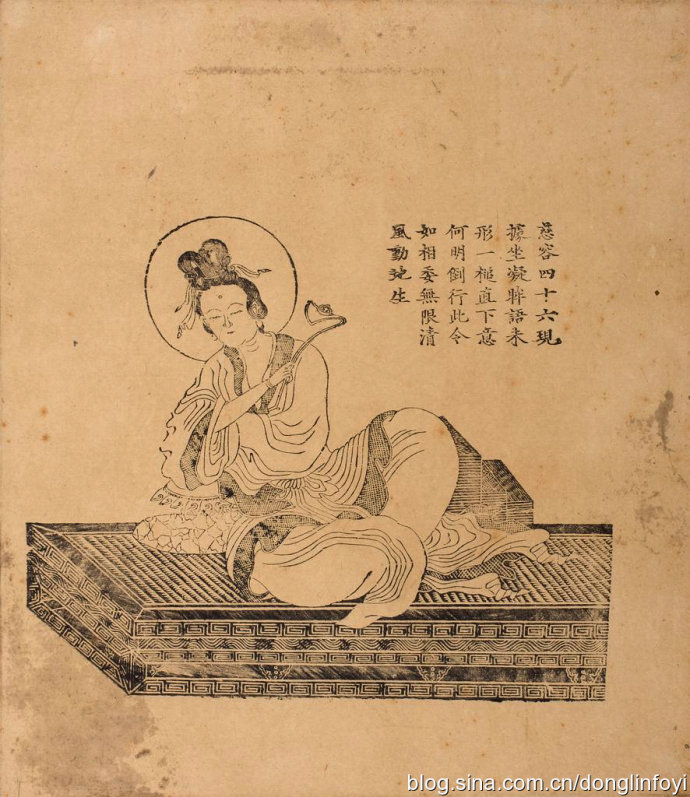 慈容四十六現
據坐凝眸語未
形一槌直下意
何明倒行此令
如相委無限清
風動地生
blog.sina.com.cn/donglinfoyi